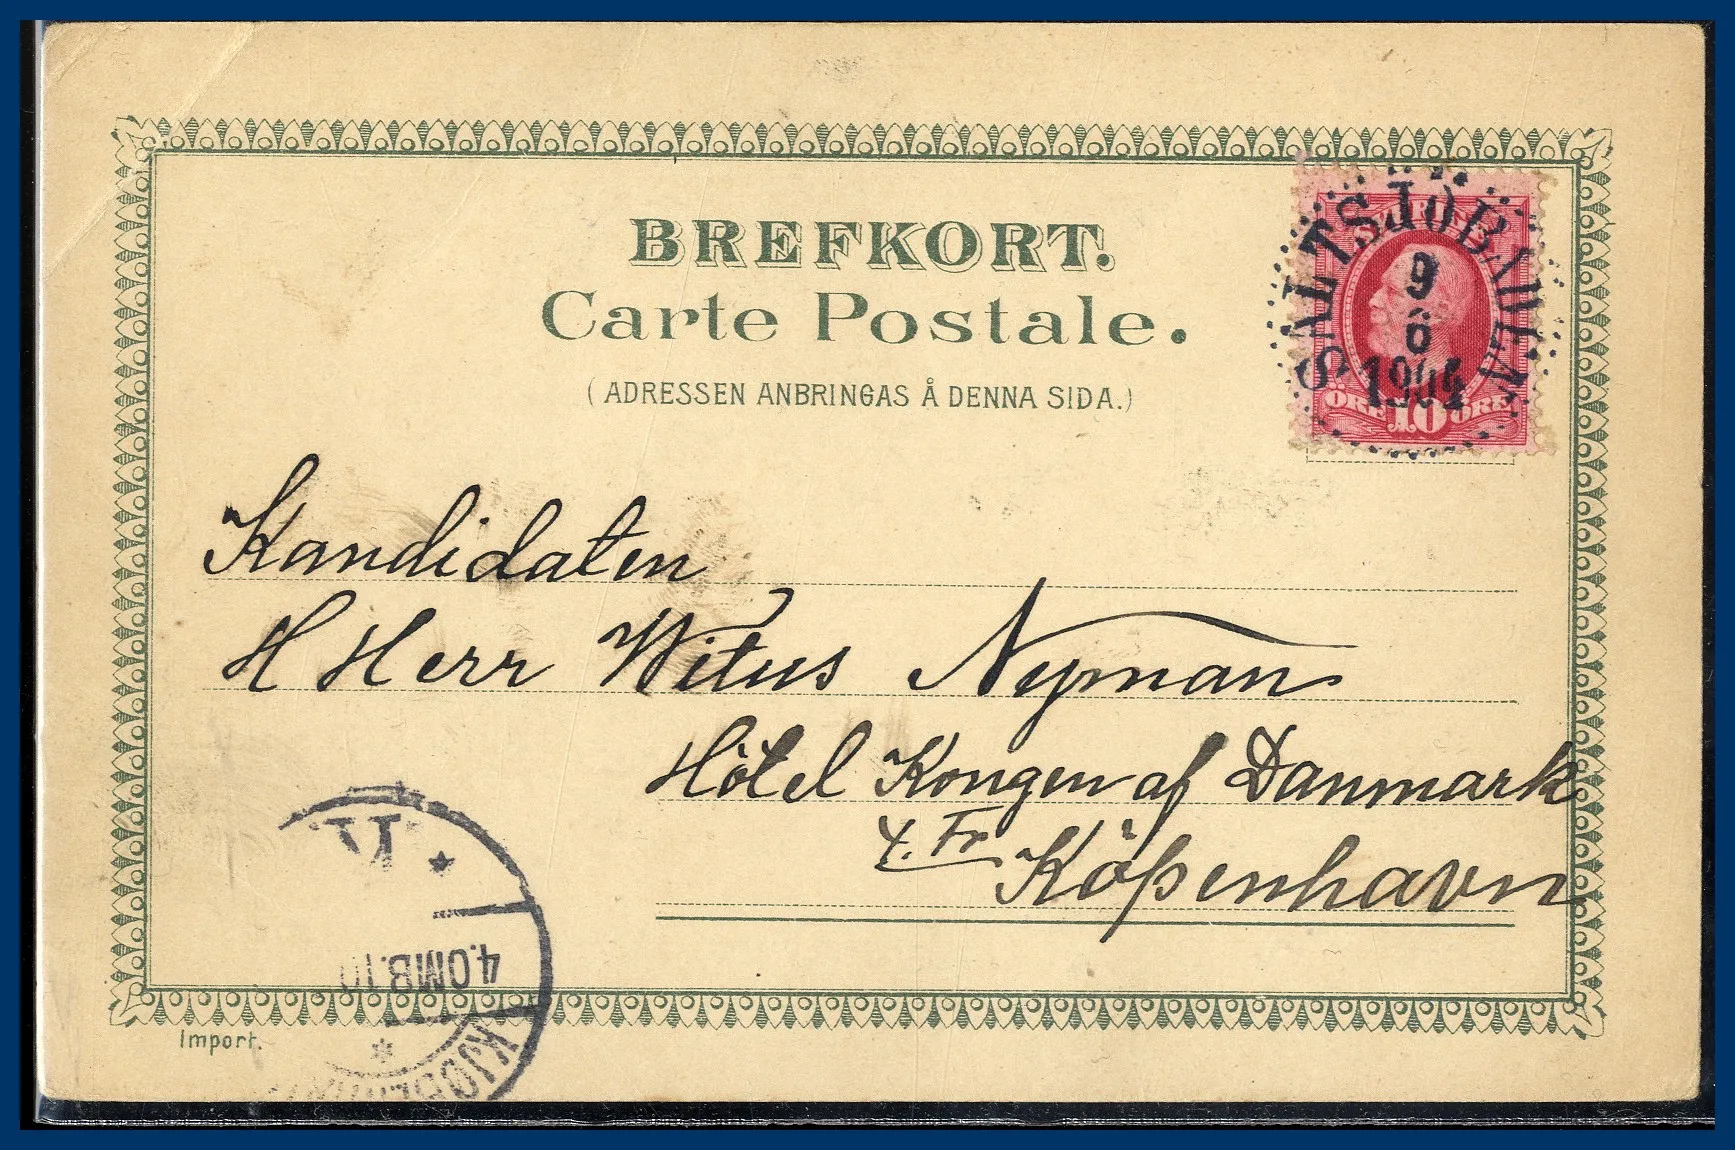 BREFKORT.
Carte Postale.
(ADRESSEN ANBRINGAS Å DENNA SIDA.)
SVERIGE
10 ÖRE ÖRE
SALTSJÖBADEN
9
6
1904
Kandidaten
H Herr Witus Nyman
Hôtel Kongen af Danmark
Köpenhavn
K
4.OMB.10
Import.